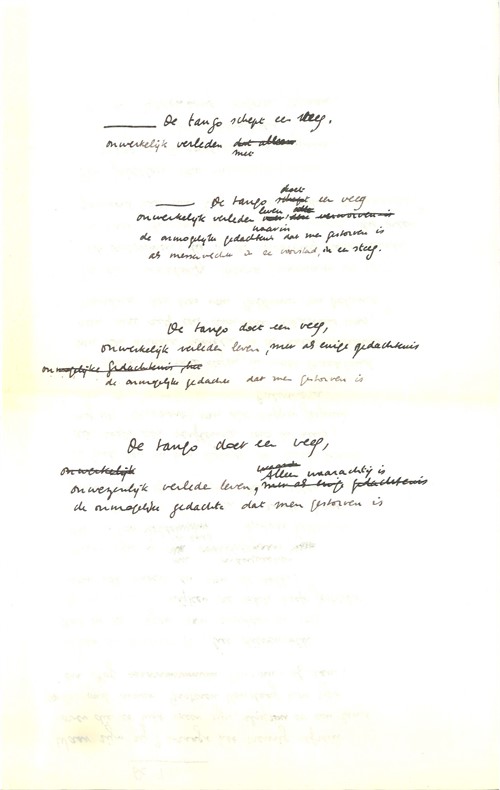 De tango schept een steeg.
onwerkelijk verleden dat alleen
met
doet
De tango schept een veeg
leven
onwerkelijk verleden verworven is
waarin
de onmogelijke gedachtenis dat men gestorven is
als messenvechter in een voorstad, in een steeg.
De tango doet een veeg,
onwerkelijk verleden leven, met als enige gedachtenis
onmogelijke gedachtenis, het
de onmogelijke gedachte dat men gestorven is
De tango doet een veeg,
onwerkelijk
waarde
Alleen waarachtig is
onwezenlijk verleden leven, met als enige gedachtenis
de onmogelijke gedachte dat men gestorven is